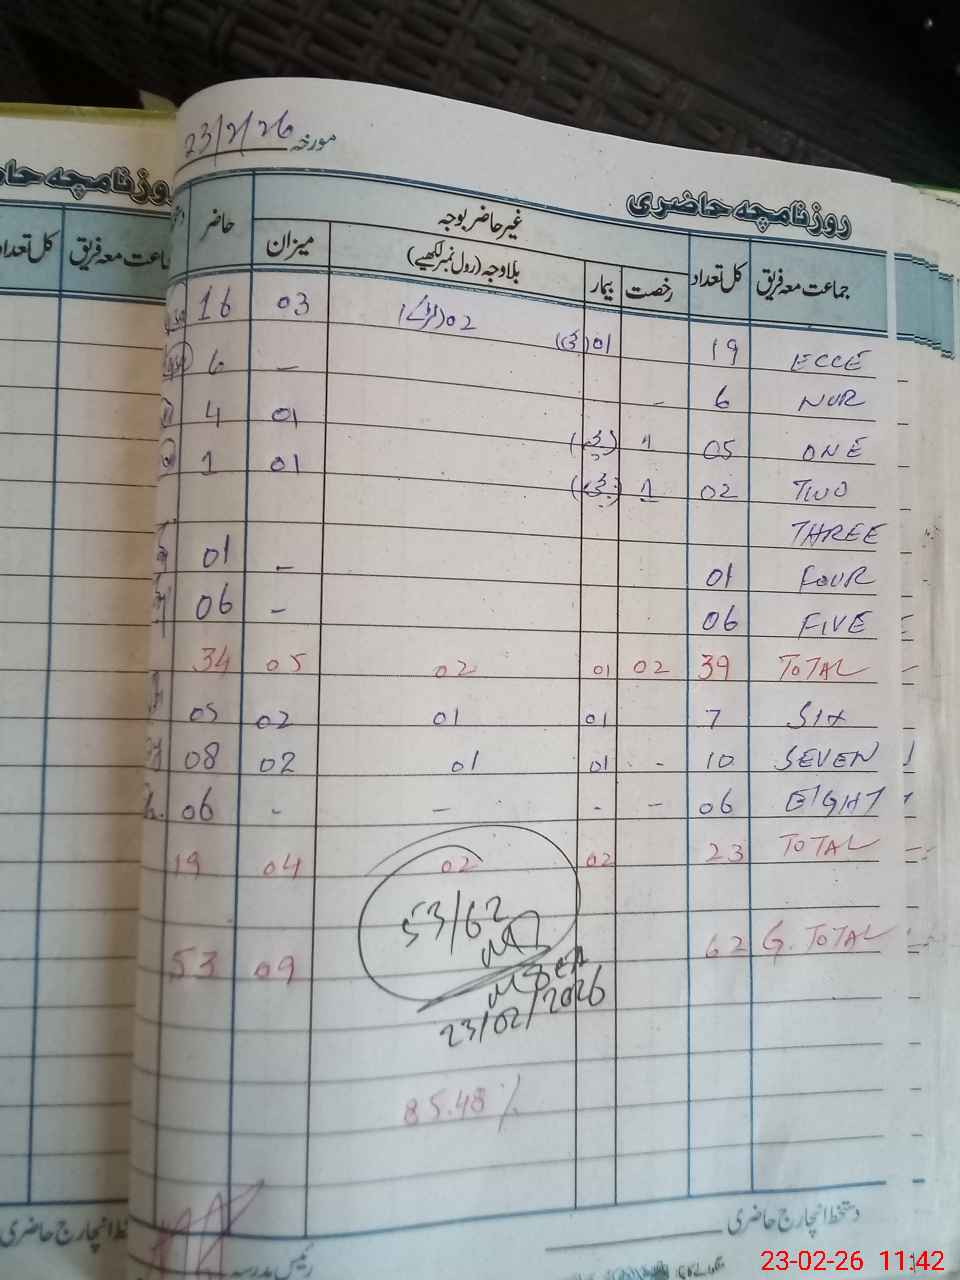 مورخہ 23/2/26
روزنامچہ حاضری
جماعت معہ فریق کل تعداد غیر حاضر بوجہ حاضر
رخصت بیمار بلاوجہ (رول نمبر لکھیے) میزان
ECCE 19 01 02 03 16
NUR 6 - - 6
ONE 05 1 01 4
TWO 02 1 01 1
THREE
FOUR 01 - 01
FIVE 06 - 06
TOTAL 39 02 01 02 05 34
SIX 7 01 01 02 05
SEVEN 10 - 01 01 02 08
EIGHT 06 - - - - 06
TOTAL 23 02 02 04 19
53/62
G. TOTAL 62 09 53
MBEA
23/02/2026
85.48 %
دستخط انچارج حاضری
رئیس مدرسہ
روزنامچہ حا
جماعت معہ فریق کل تعداد
23-02-26 11:42